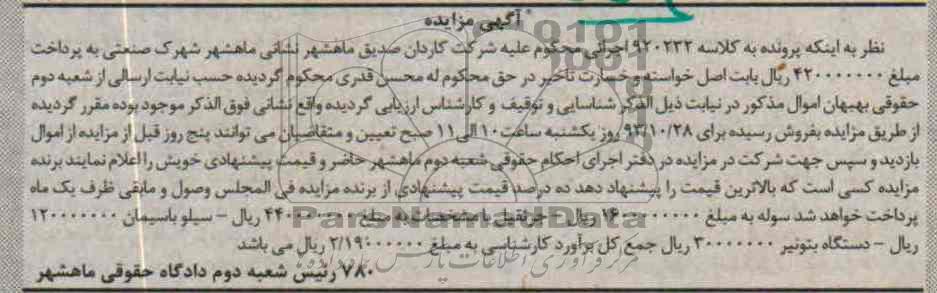 آگهی مزایده
نظر به اینکه پرونده به کلاسه ۹۲۰۲۳۲ اجرائی محکوم علیه شرکت کاردان صدیق ماهشهر نشانی ماهشهر شهرک صنعتی به پرداخت
مبلغ ۴۲۰۰۰۰۰۰۰۰ ریال بابت اصل خواسته و خسارت تاخیر در حق محکوم له محسن قدری محکوم گردیده حسب نیابت ارسالی از شعبه دوم
حقوقی بهبهان اموال مذکور در نیابت ذیل الذکر شناسایی و توقیف و کارشناس ارزیابی گردیده واقع نشانی فوق الذکر موجود بوده مقرر گردیده
از طریق مزایده بفروش رسیده برای ۹۳/۱۰/۲۸ روز یکشنبه ساعت ۱۰ الی ۱۱ صبح تعیین و متقاضیان می توانند پنج روز قبل از مزایده از اموال
بازدید و سپس جهت شرکت در مزایده در دفتر اجرای احکام حقوقی شعبه دوم ماهشهر حاضر و قیمت پیشنهادی خویش را اعلام نمایند برنده
مزایده کسی است که بالاترین قیمت را پیشنهاد دهد ده درصد قیمت پیشنهادی از برنده مزایده فی المجلس وصول و مابقی ظرف یک ماه
پرداخت خواهد شد سوله به مبلغ ریال – جرثقیل با مشخصات به مبلغ ریال – سیلو باسیمان ۱۲۰۰۰۰۰۰۰
ریال – دستگاه بتونیر ۳۰۰۰۰۰۰۰ ریال جمع کل برآورد کارشناسی به مبلغ ریال می باشد
۷۸۰ رئیس شعبه دوم دادگاه حقوقی ماهشهر
ParsNamadData
مرکز فرآوری اطلاعات پارس نماد داده ها